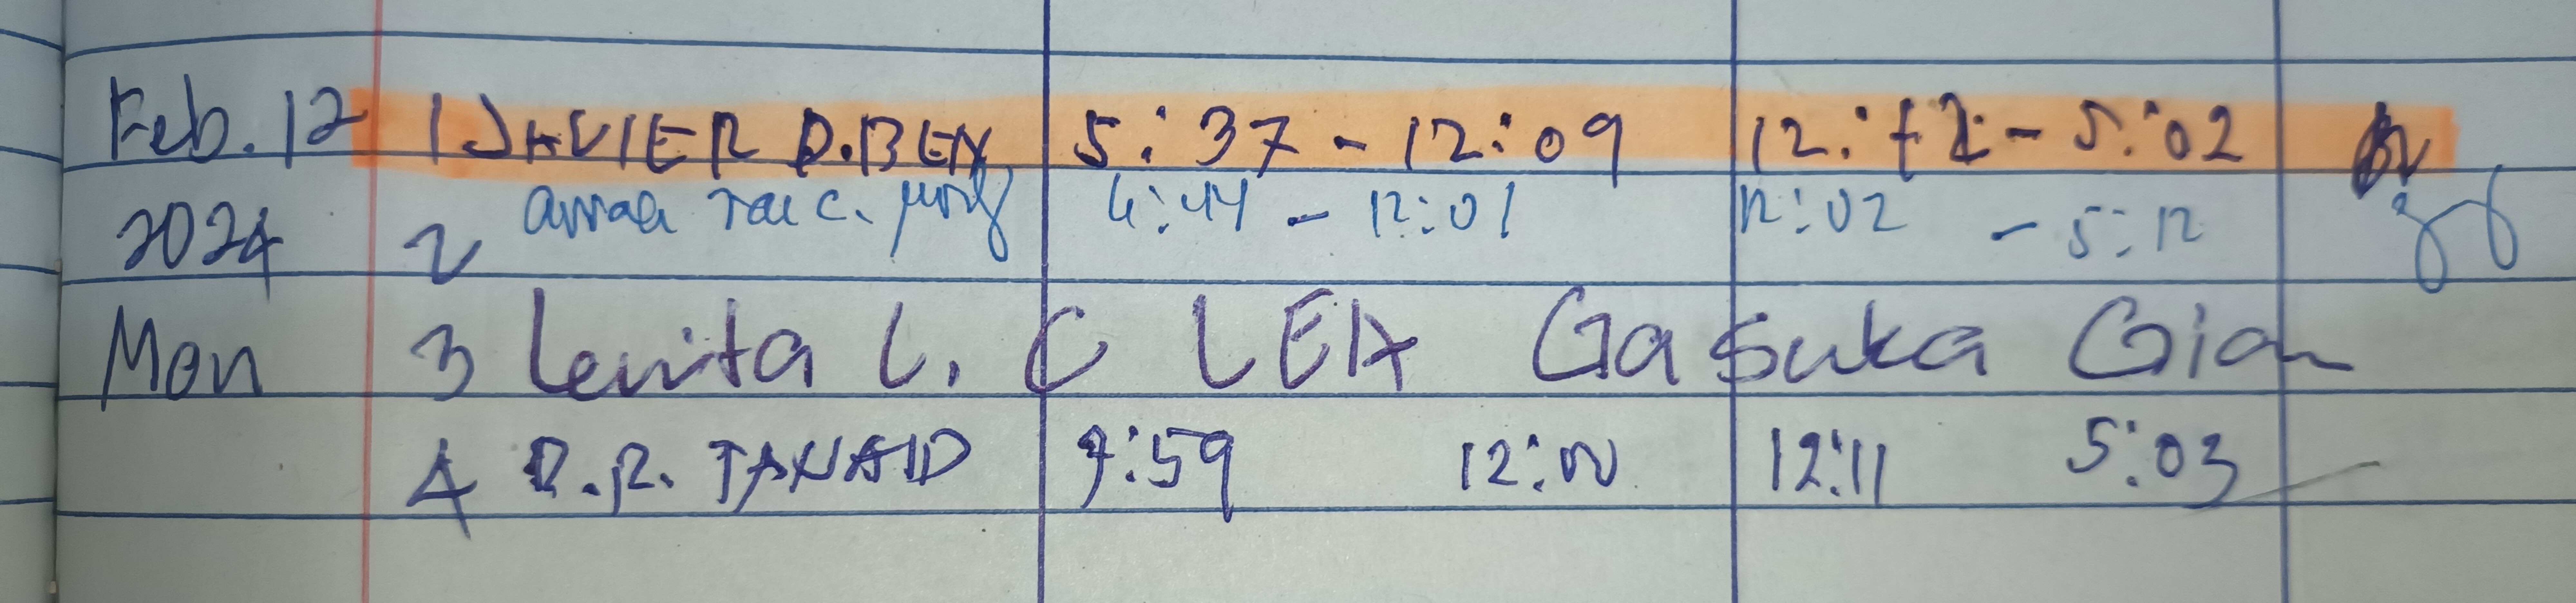 Feb. 12 1 JAVIER D. BEN 5:37 - 12:09 - 5:02
2024 2 c. 4:44 - 12:01 12:02 - 5:12
Mon 3 Lenita L. C LEA Gasuka Gian
4 R.R. TANAID 7:59 12:00 12:11 5:03